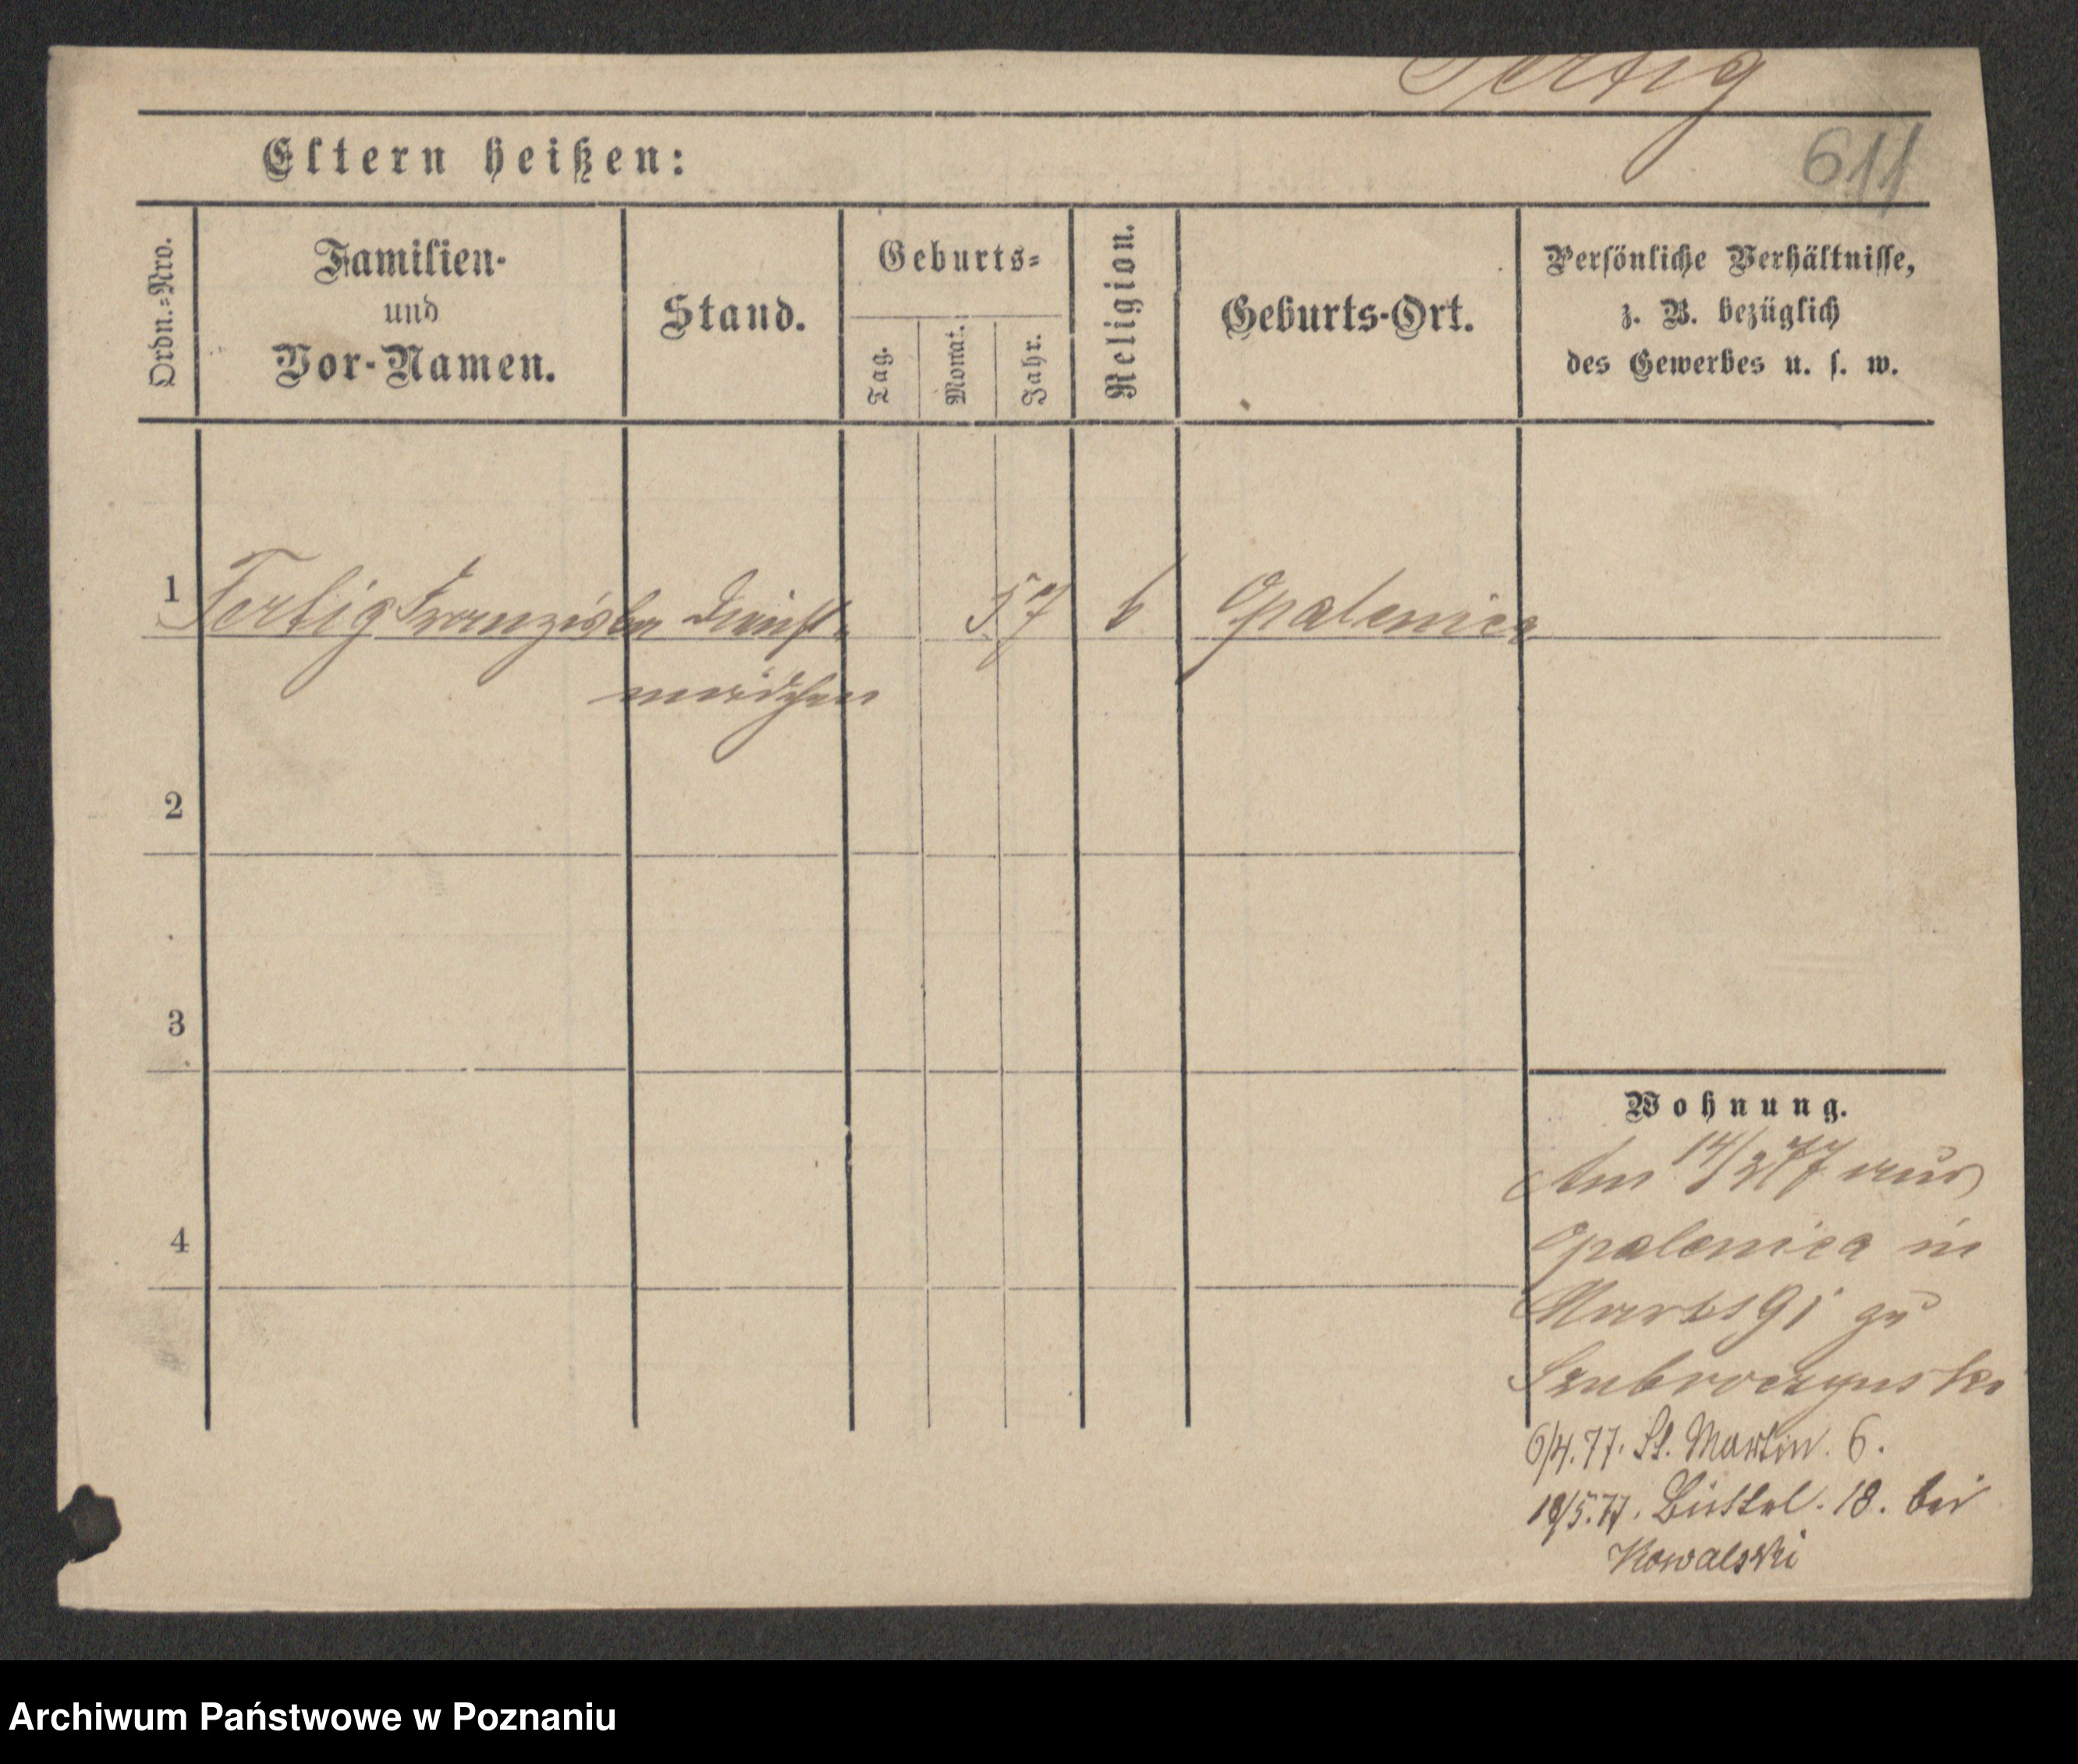 Fertig
Eltern heißen:
611
Ordn.=Nro.
Familien-
und
Vor-Namen.
Stand.
Geburts=
Tag.
Monat.
Jahr.
Religion.
Geburts-Ort.
Persönliche Verhältnisse,
z. B. bezüglich
des Gewerbes u. s. w.
1 Fertig Franziska Dienst= 57 k Opalenica
mädchen
2
3
4
Wohnung.
Am 14/3 77 aus
Opalenica in
91 zu
6/4.77. St. Martin. 6.
18. bei
Kowalski
Archiwum Państwowe w Poznaniu